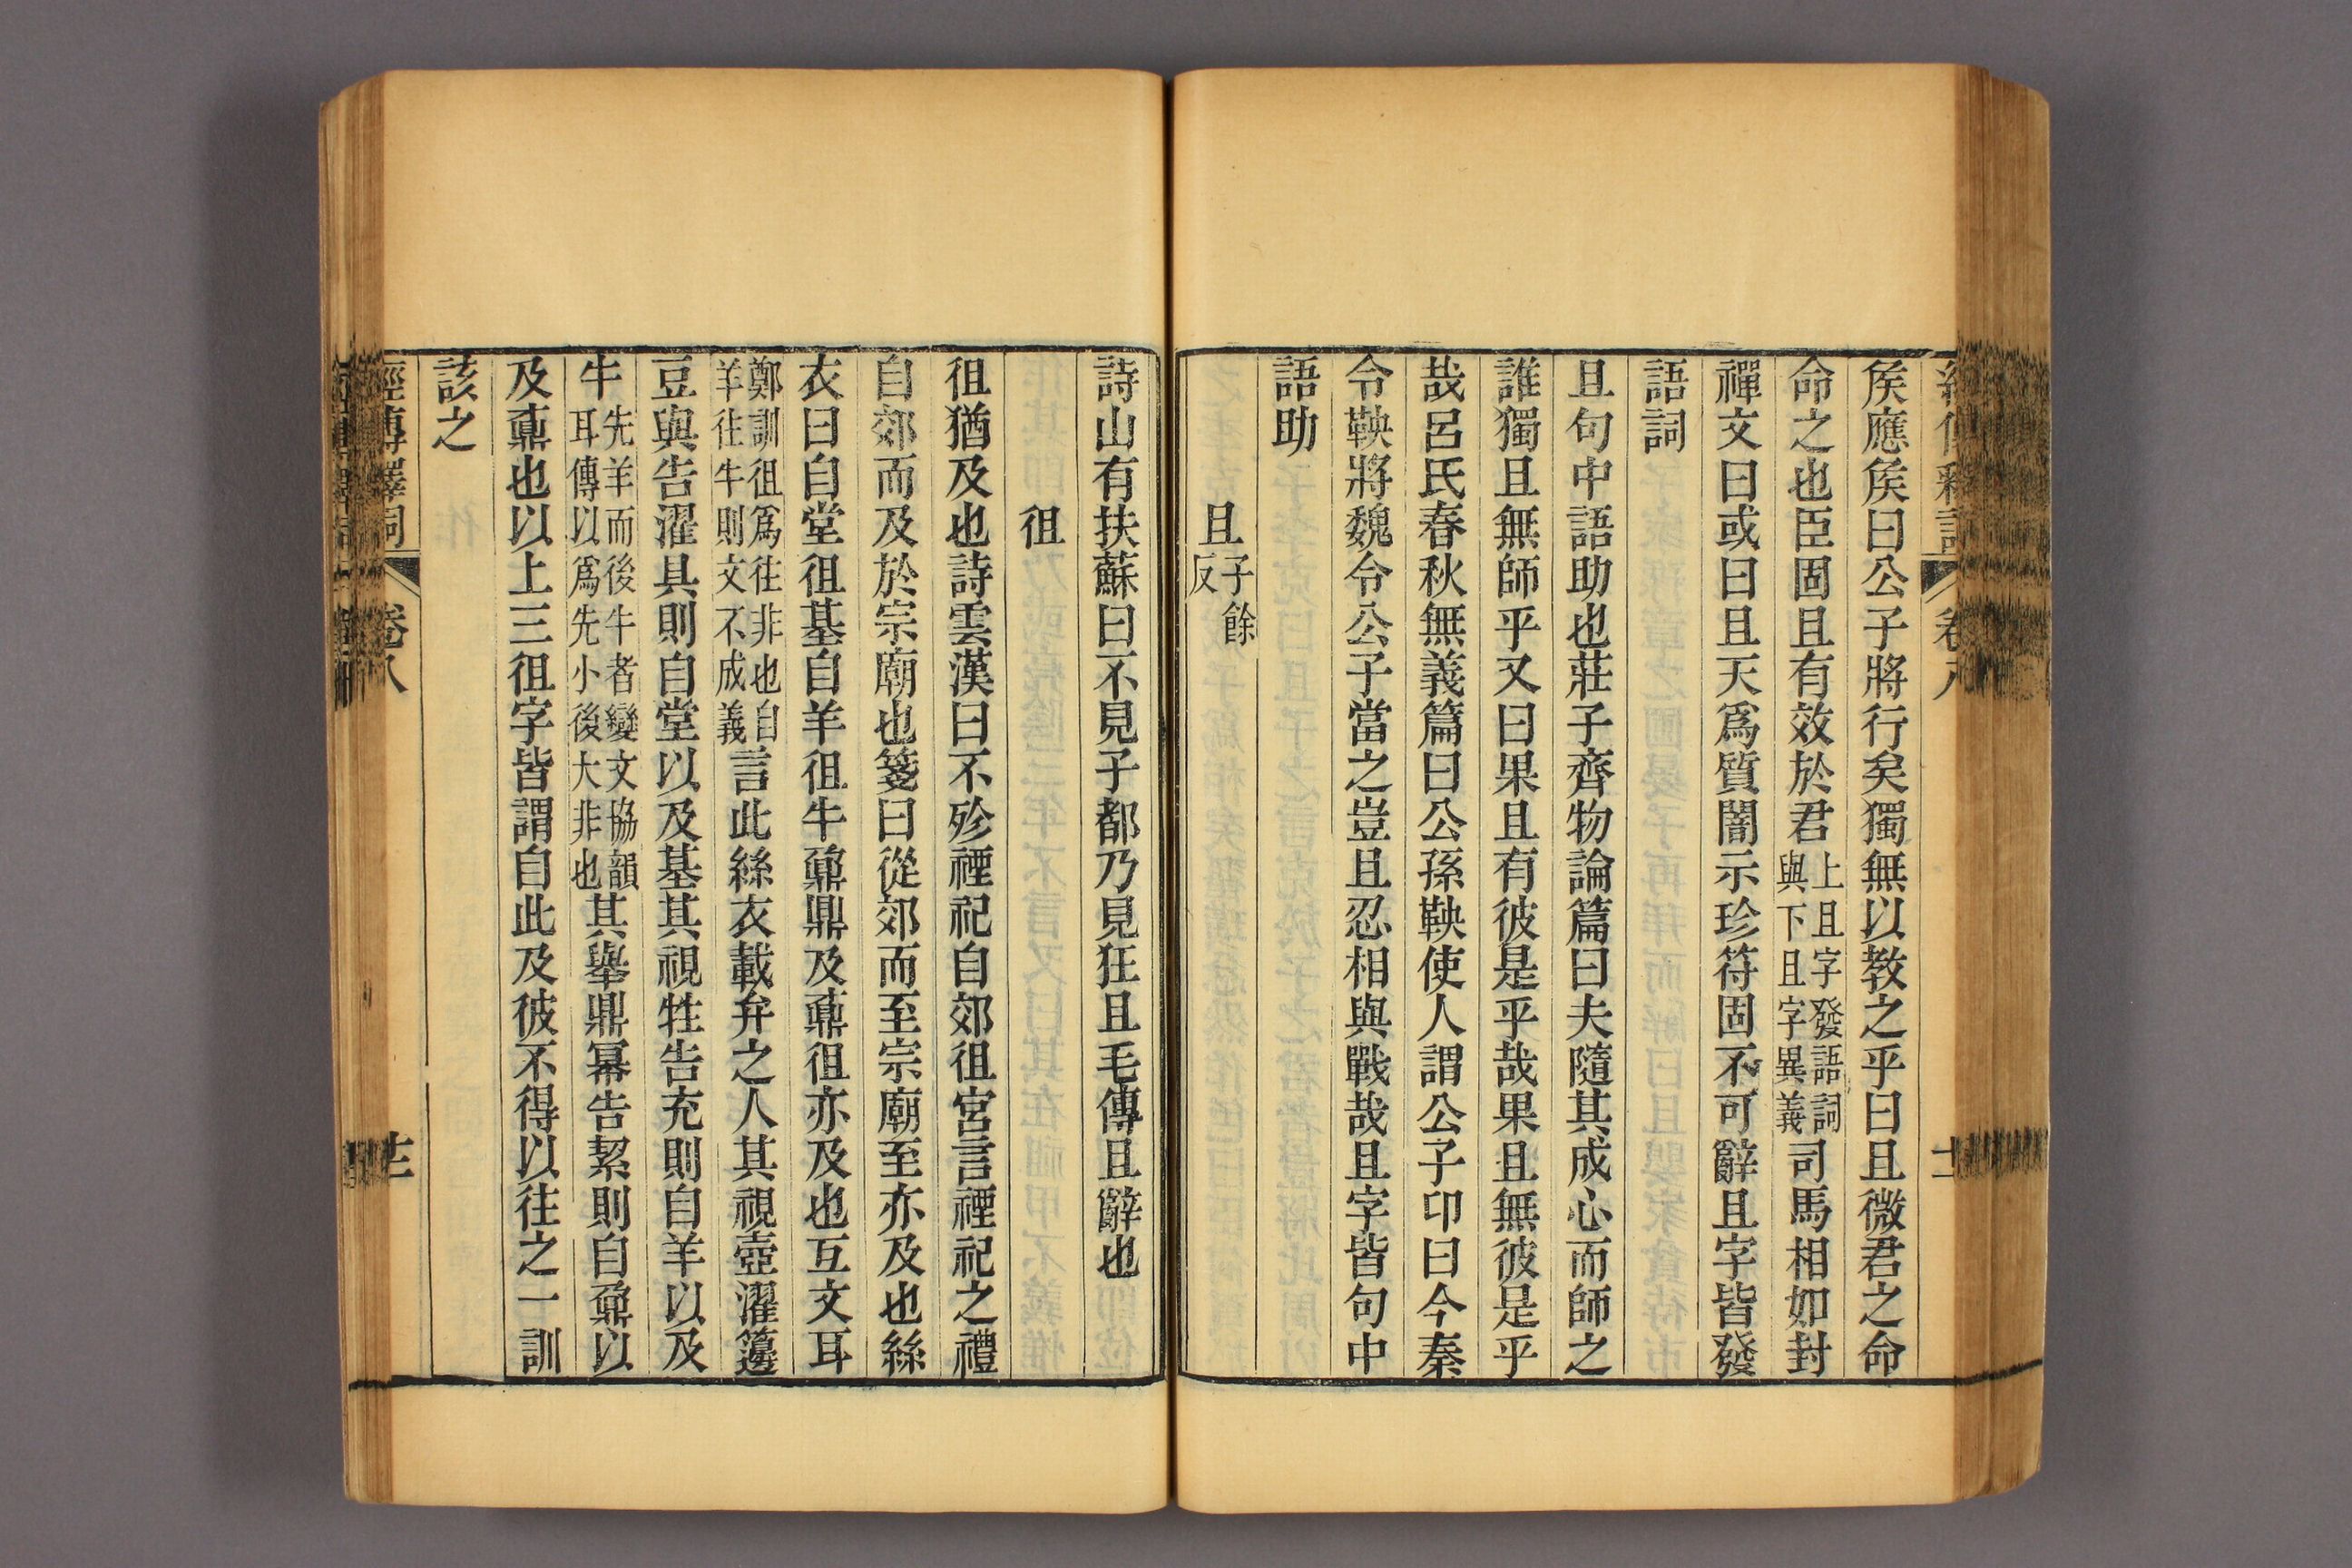 經傳釋詞 卷八
矦應矦曰公子將行矣獨無以教之乎曰且微君之命
命之也臣固且有效於君上且字發語詞與下且字異義司馬相如封
禪文曰或曰且天爲質闇示珍符固不可辭且字皆發
語詞
且句中語助也莊子齊物論篇曰夫隨其成心而師之
誰獨且無師乎又曰果且有彼是乎哉果且無彼是乎
哉呂氏春秋無義篇曰公孫鞅使人謂公子卬曰今秦
令鞅將魏令公子當之豈且忍相與戰哉且字皆句中
語助
且子餘反
詩山有扶蘇曰不見子都乃見狂且毛傳且辭也
徂
徂猶及也詩雲漢曰不殄禋祀自郊徂宮言禋祀之禮
自郊而及於宗廟也箋曰從郊而至宗廟至亦及也絲
衣曰自堂徂基自羊徂牛鼐鼎及鼒徂亦及也互文耳
鄭訓徂爲往非也自羊往牛則文不成義言此絲衣載弁之人其視壺濯籩
豆與告濯具則自堂以及基其視牲告充則自羊以及
牛先羊而後牛者變文協韻耳傳以爲先小後大非也其舉鼎冪告絜則自鼐以
及鼒也以上三徂字皆謂自此及彼不得以往之一訓
該之
經傳釋詞 卷八